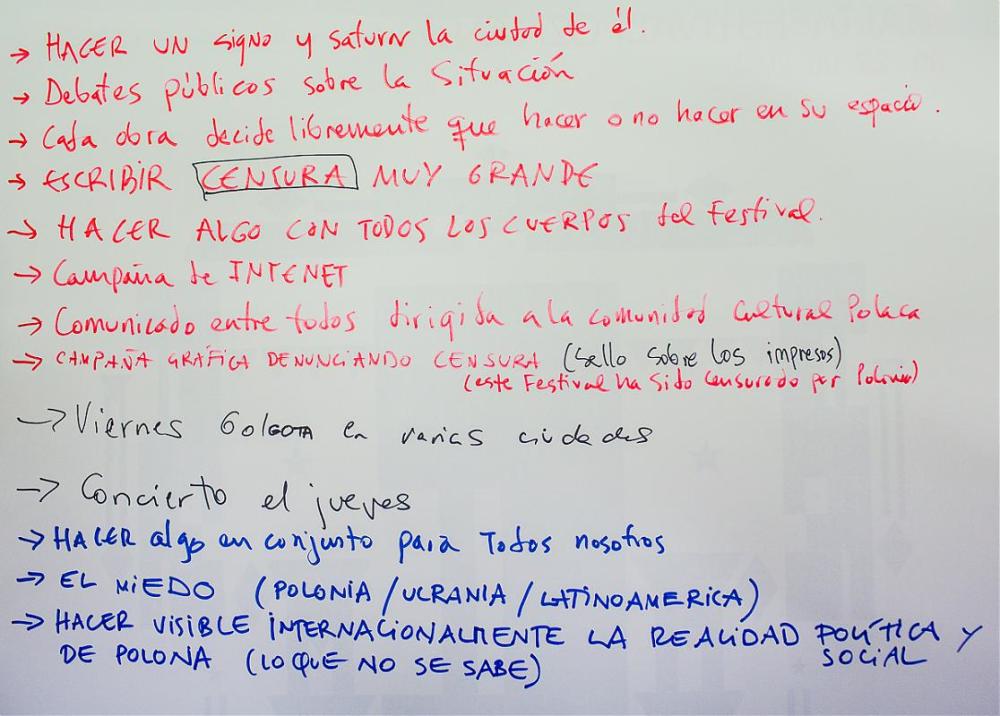 → HACER UN signo y saturar la ciudad de él.
→ Debates públicos sobre la Situación
→ Cada obra decide libremente que hacer o no hacer en su espacio.
→ ESCRIBIR CENSURA MUY GRANDE
→ HACER ALGO CON TODOS LOS CUERPOS del Festival.
→ Campaña de INTENET
→ Comunicado entre todos dirigida a la comunidad Cultural Polaca
→ CAMPAÑA GRÁFICA DENUNCIANDO CENSURA (Sello sobre los impresos)
(este Festival ha sido censurado por Polonia)
→ Viernes GolGOTA en varias ciudades
→ Concierto el jueves
→ HACER algo en conjunto para Todos nosotros
→ EL MIEDO (POLONIA / UCRANIA / LATINOAMERICA)
→ HACER VISIBLE INTERNACIONALMENTE LA REALIDAD POLÍTICA Y
DE POLONA (LO QUE NO SE SABE) SOCIAL